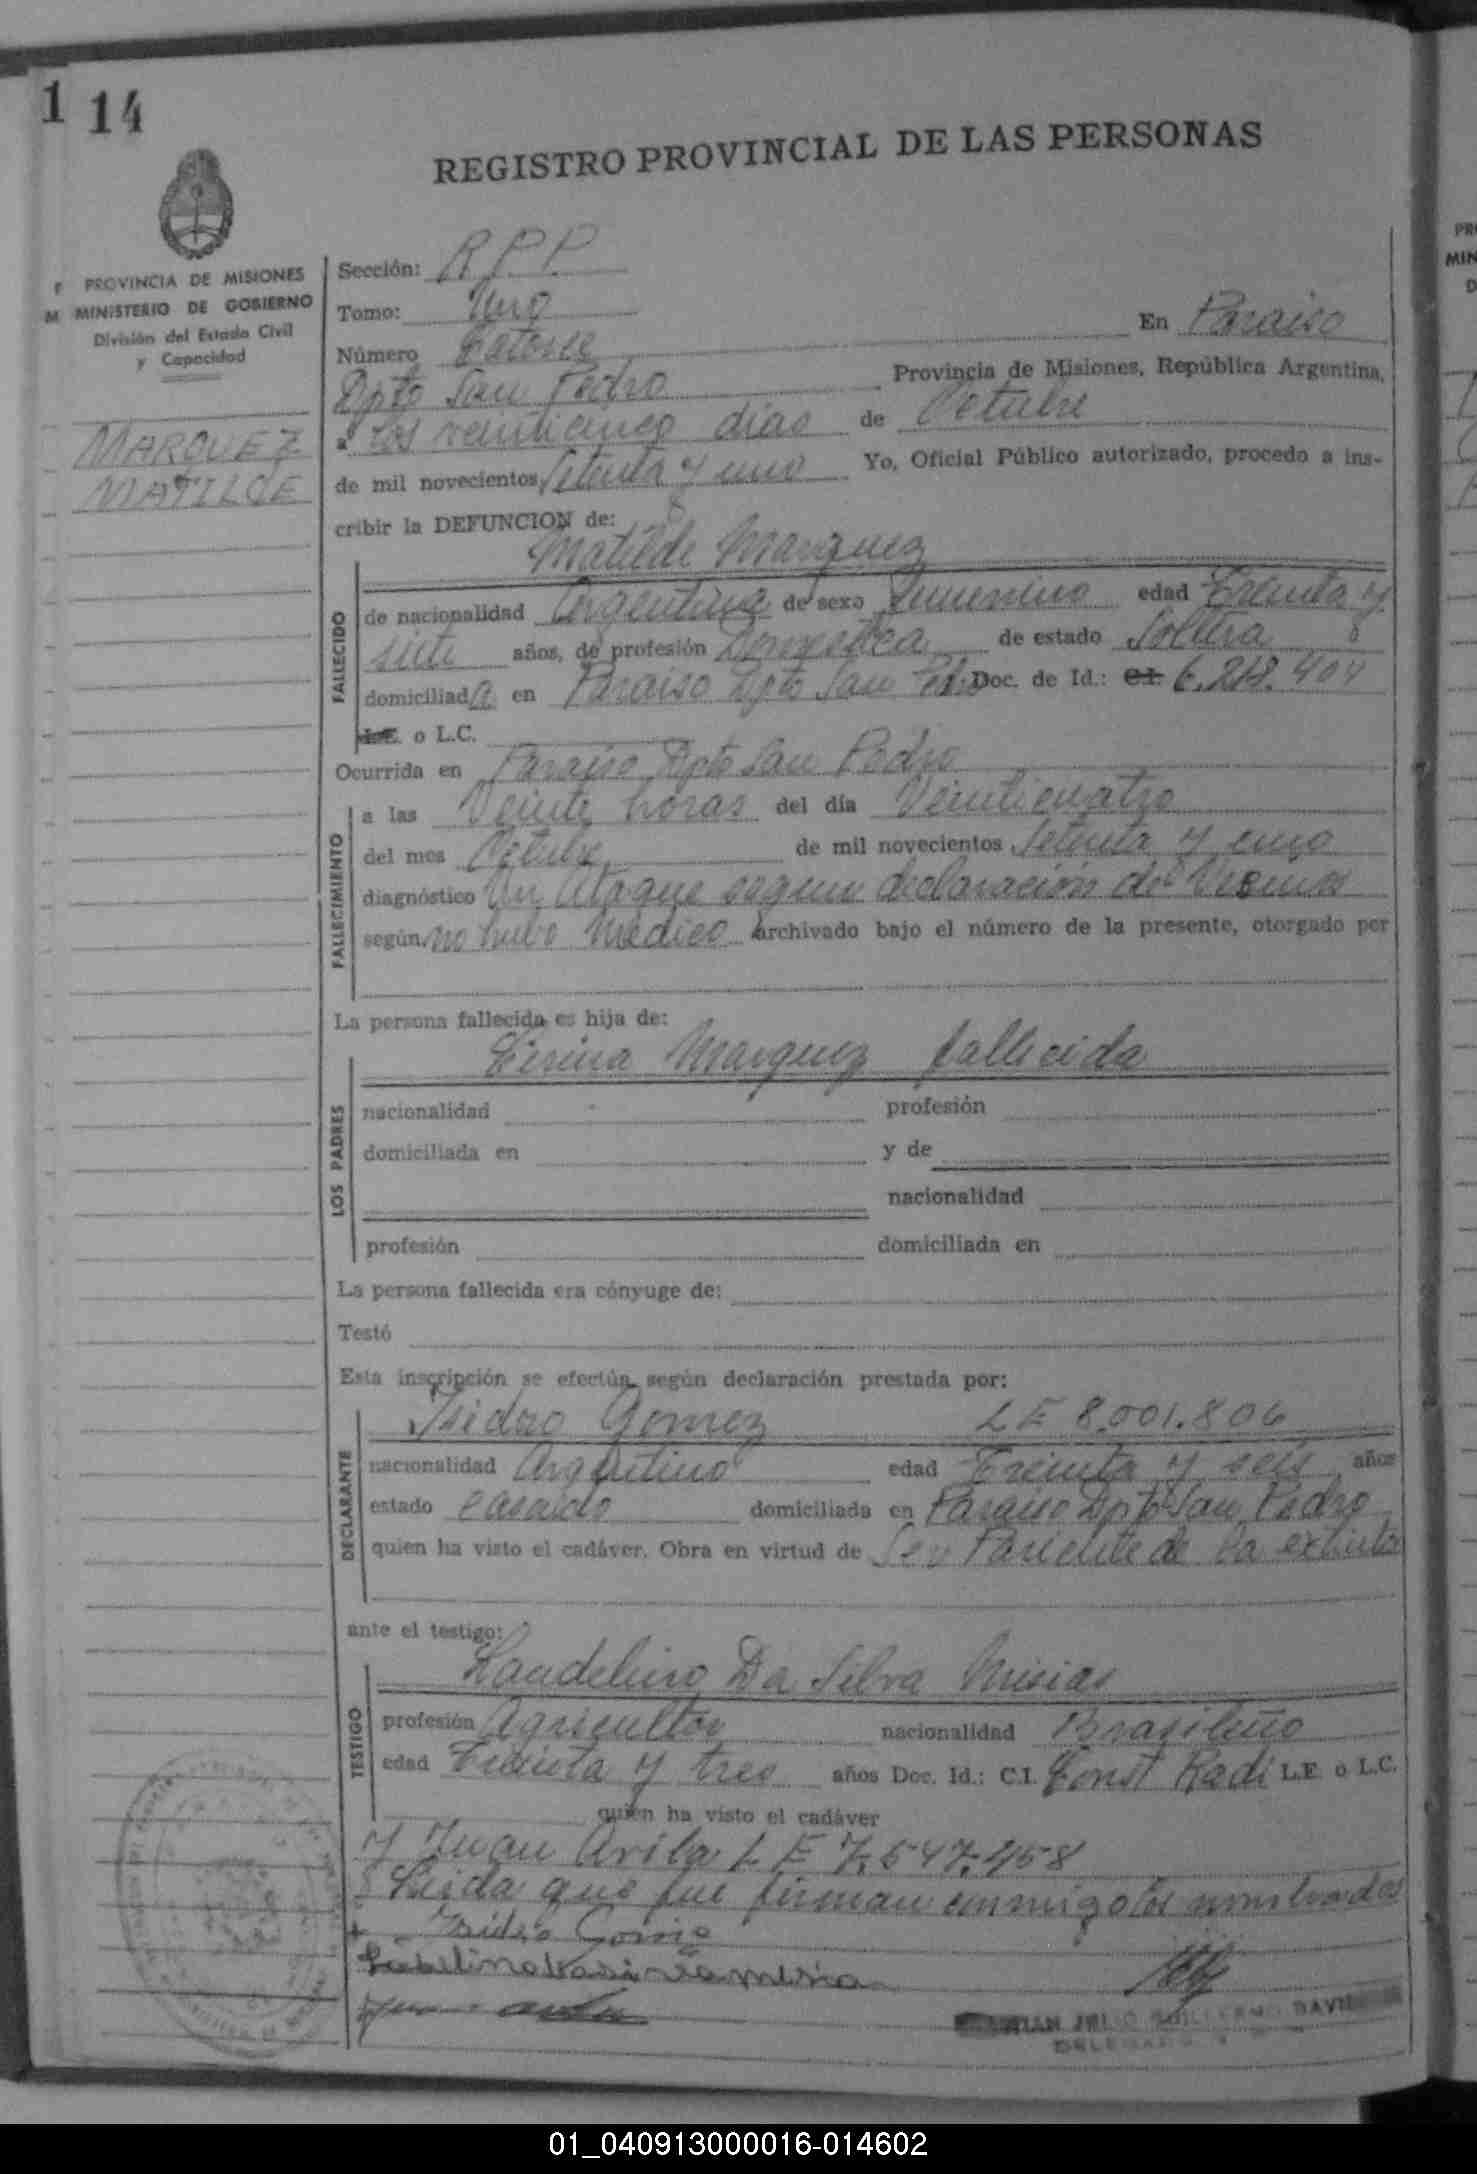 1 14
REGISTRO PROVINCIAL DE LAS PERSONAS
PROVINCIA DE MISIONES
MINISTERIO DE GOBIERNO
División del Estado Civil
y Capacidad
MARQUEZ
MATILDE
Sección: R.P.P.
Tomo: Uno
En Paraiso
Número Catorce
Dpto San Pedro Provincia de Misiones, República Argentina,
a los veinticinco dias de Octubre
de mil novecientos Setenta y uno Yo, Oficial Público autorizado, procedo a ins-
cribir la DEFUNCION de:
Matilde Marquez
FALLECIDO
de nacionalidad Argentina de sexo Femenino edad Treinta y
siete años, de profesión Domestica de estado Soltera
domiciliada en Paraiso Dpto San Pedro Doc. de Id.: C.I. 6.218.404
L.E. o L.C.
Ocurrida en Paraiso Dpto San Pedro
FALLECIMIENTO
a las Veinte horas del día Veinticuatro
del mes Octubre de mil novecientos Setenta y uno
diagnóstico Un Ataque segun declaración de Vecinos
según no hubo Médico archivado bajo el número de la presente, otorgado por
La persona fallecida es hija de:
Marquez fallecida
LOS PADRES
nacionalidad profesión
domiciliada en y de
nacionalidad
profesión domiciliada en
La persona fallecida era cónyuge de:
Testó
Esta inscripción se efectúa según declaración prestada por:
Isidro Gomez LE 8.001.806
DECLARANTE
nacionalidad Argentino edad Treinta y seis años
estado casado domiciliada en Paraiso Dpto San Pedro
quien ha visto el cadáver. Obra en virtud de Ser Pariente de la extinta
ante el testigo:
Laudelino Da Silva Misias
TESTIGO
profesión Agricultor nacionalidad Brasileño
edad Treinta y tres años Doc. Id.: C.I. Const Radi L.E. o L.C.
quien ha visto el cadáver
y Juan Avila L E 7.547.458
Leida que fue firman conmigo los nombrados
Isidro Gomez
JULIO GUILLERMO
DELEGADO
01_040913000016-014602